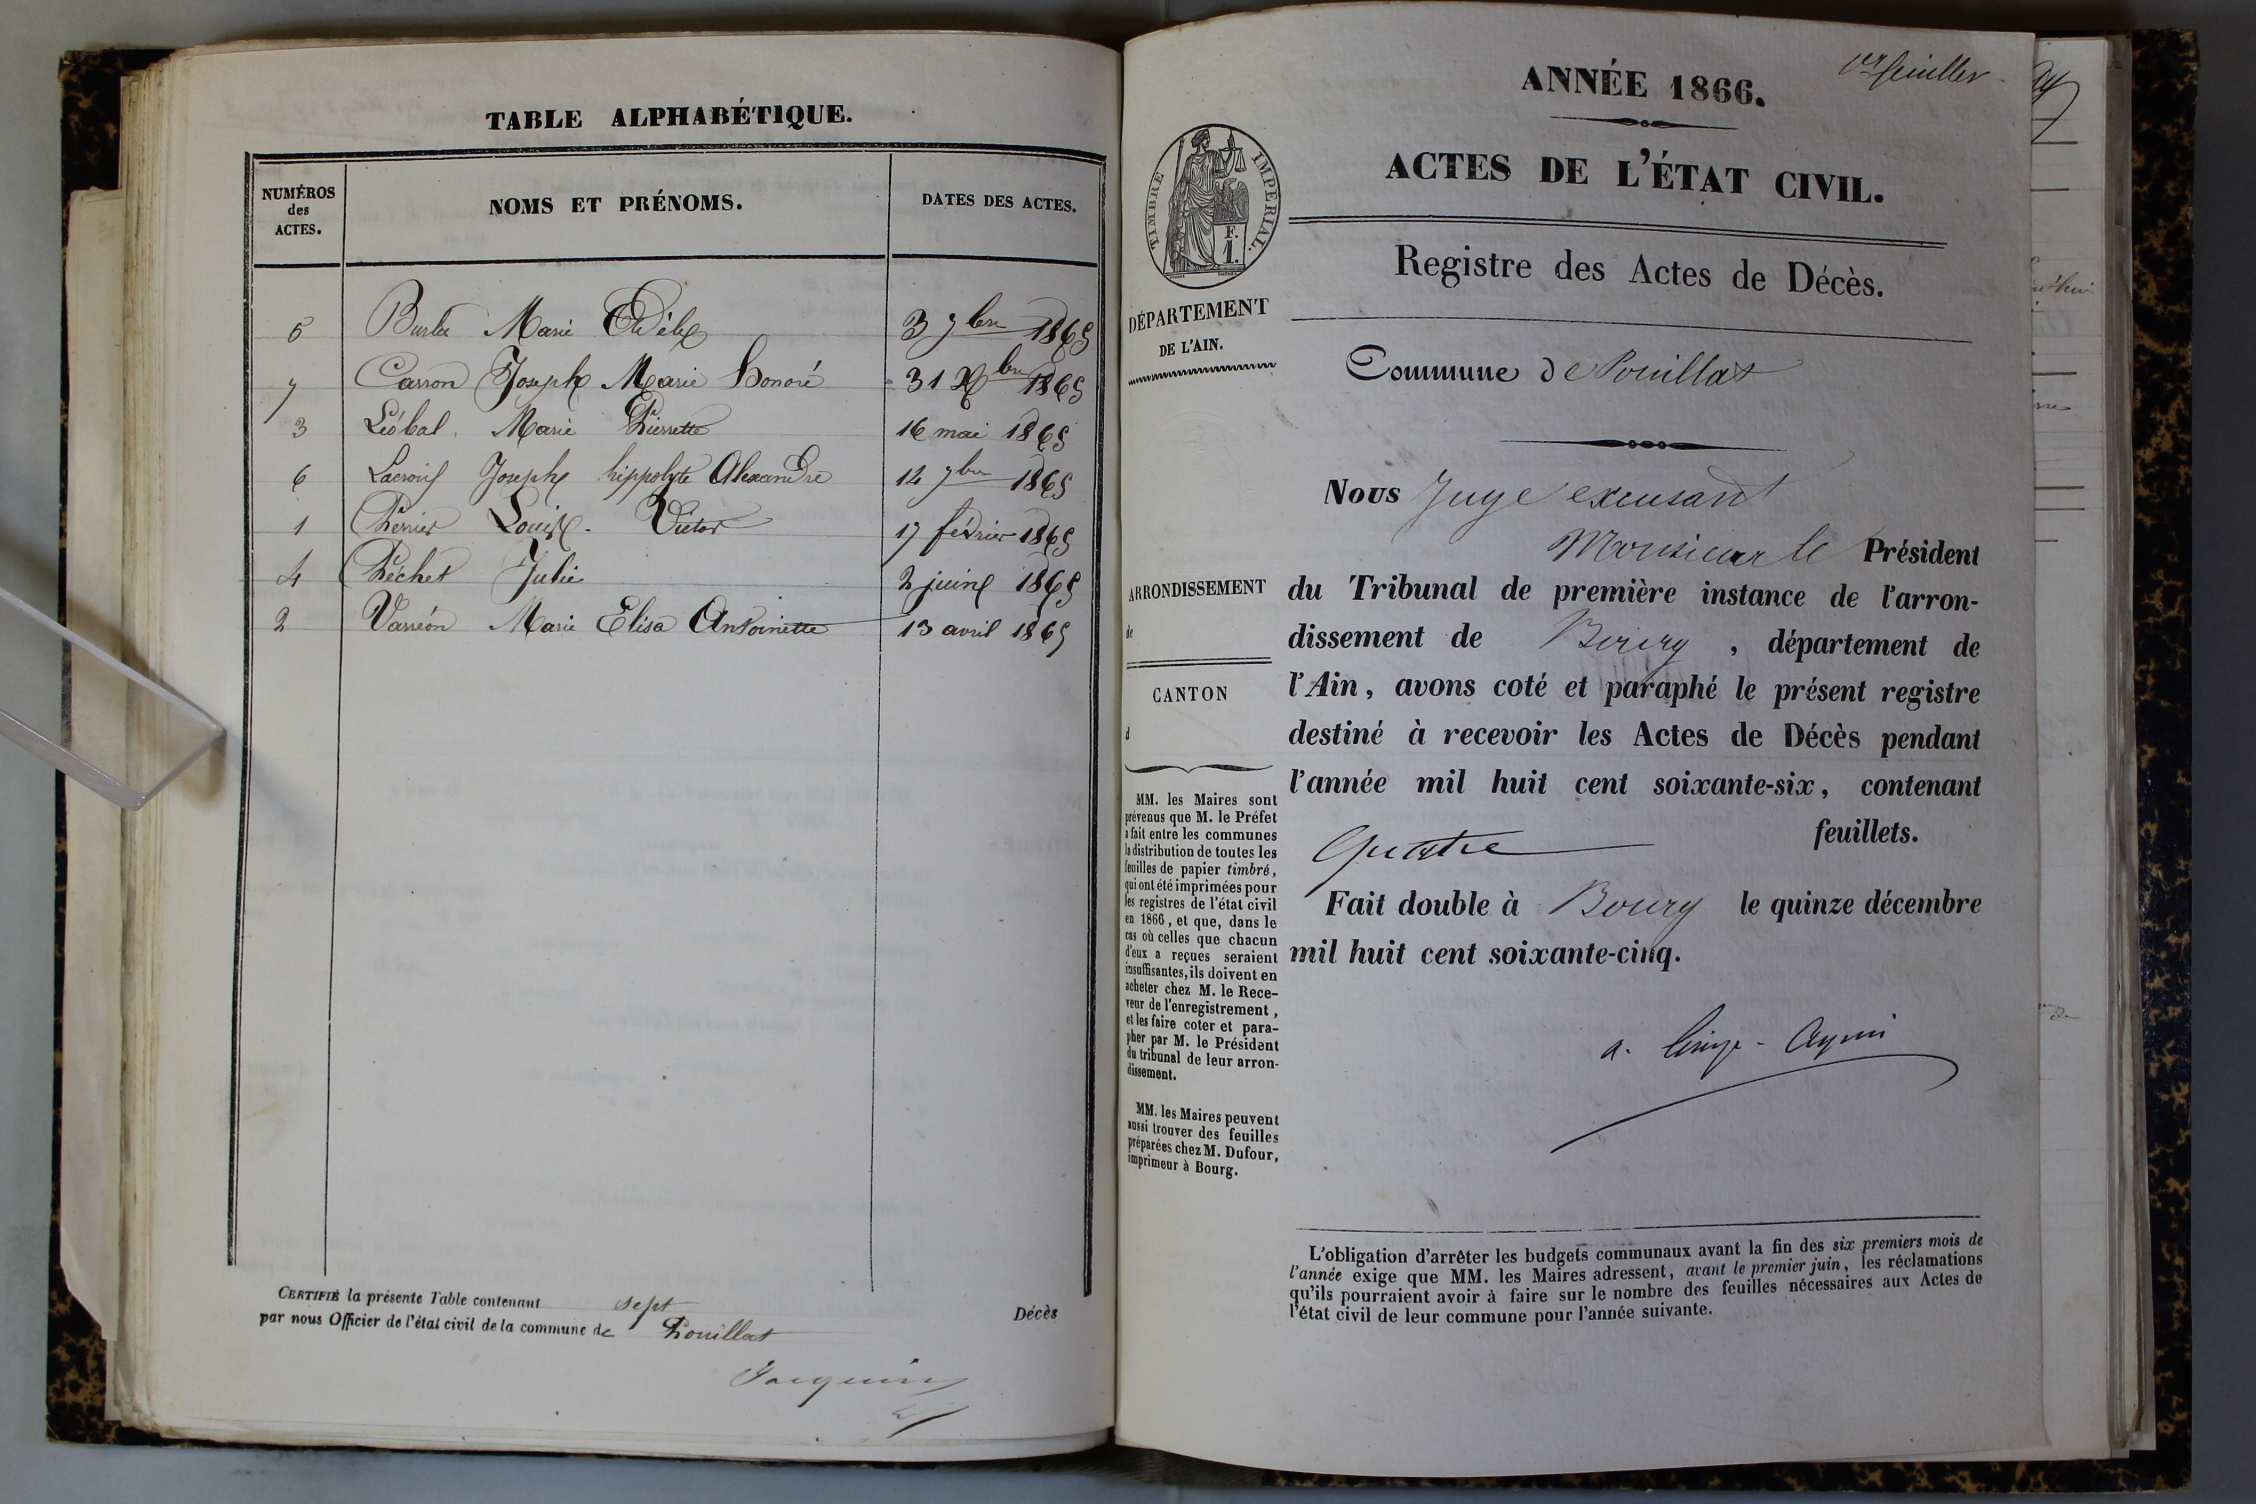 TABLE ALPHABÉTIQUE.
NUMÉROS des ACTES. NOMS ET PRÉNOMS. DATES DES ACTES.
5 Marie 3 7bre 1865
7 Carron Joseph Marie honoré 31 Xbre 1865
3 Léobal Marie Pierrette 16 mai 1865
6 Lacroix Joseph hippolyte Alexandre 12 7bre 1865
1 Perrier Louis Victor 17 février 1865
4 Péchet Julie 2 juin 1865
2 Varréon Marie Elisa Antoinette 13 avril 1865
CERTIFIÉ la présente Table contenant sept Décès
par nous Officier de l'état civil de la commune de Pouillat
Jacquin
1er feuillet
ANNÉE 1866.
ACTES DE L'ÉTAT CIVIL.
Registre des Actes de Décès.
TIMBRE IMPÉRIAL.
F.
1.
DÉPARTEMENT
DE L'AIN.
Commune de Pouillat
Nous Juge excusant
Monsieur le Président
ARRONDISSEMENT
de
CANTON
d
du Tribunal de première instance de l'arron-
dissement de Bourg, département de
l'Ain, avons coté et paraphé le présent registre
destiné à recevoir les Actes de Décès pendant
l'année mil huit cent soixante-six, contenant
quatre feuillets.
Fait double à Bourg le quinze décembre
mil huit cent soixante-cinq.
MM. les Maires sont
prévenus que M. le Préfet
a fait entre les communes
la distribution de toutes les
feuilles de papier timbré,
qui ont été imprimées pour
les registres de l'état civil
en 1866, et que, dans le
cas où celles que chacun
d'eux a reçues seraient
insuffisantes, ils doivent en
acheter chez M. le Rece-
veur de l'enregistrement,
et les faire coter et para-
pher par M. le Président
du tribunal de leur arron-
dissement.
MM. les Maires peuvent
aussi trouver des feuilles
préparées chez M. Dufour,
imprimeur à Bourg.
L'obligation d'arrêter les budgets communaux avant la fin des six premiers mois de
l'année exige que MM. les Maires adressent, avant le premier juin, les réclamations
qu'ils pourraient avoir à faire sur le nombre des feuilles nécessaires aux Actes de
l'état civil de leur commune pour l'année suivante.